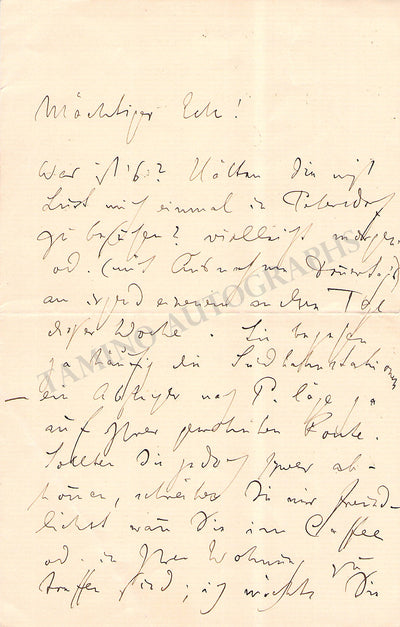 Mächtiger Eck!
War ist's? Hätten Sie nicht
Lust mich einmal in Petersdorf
zu besuchen? vielleicht morgen
od. (mit Ausnahme Donnerstags)
an irgend einem andern Tge
dieser Woche. Sie besuchen
ja häufig die Südbahnstationen
— ein Abstecher nach P. läge ja
auf Ihrer gewohnten Route.
Sollten Sie jedoch schwer ab-
können, schreiben Sie mir freund-
lichst wann Sie im Caffee
od. in Ihrer Wohnung zu
treffen sind; ich möchte Sie
TAMINO AUTOGRAPHS